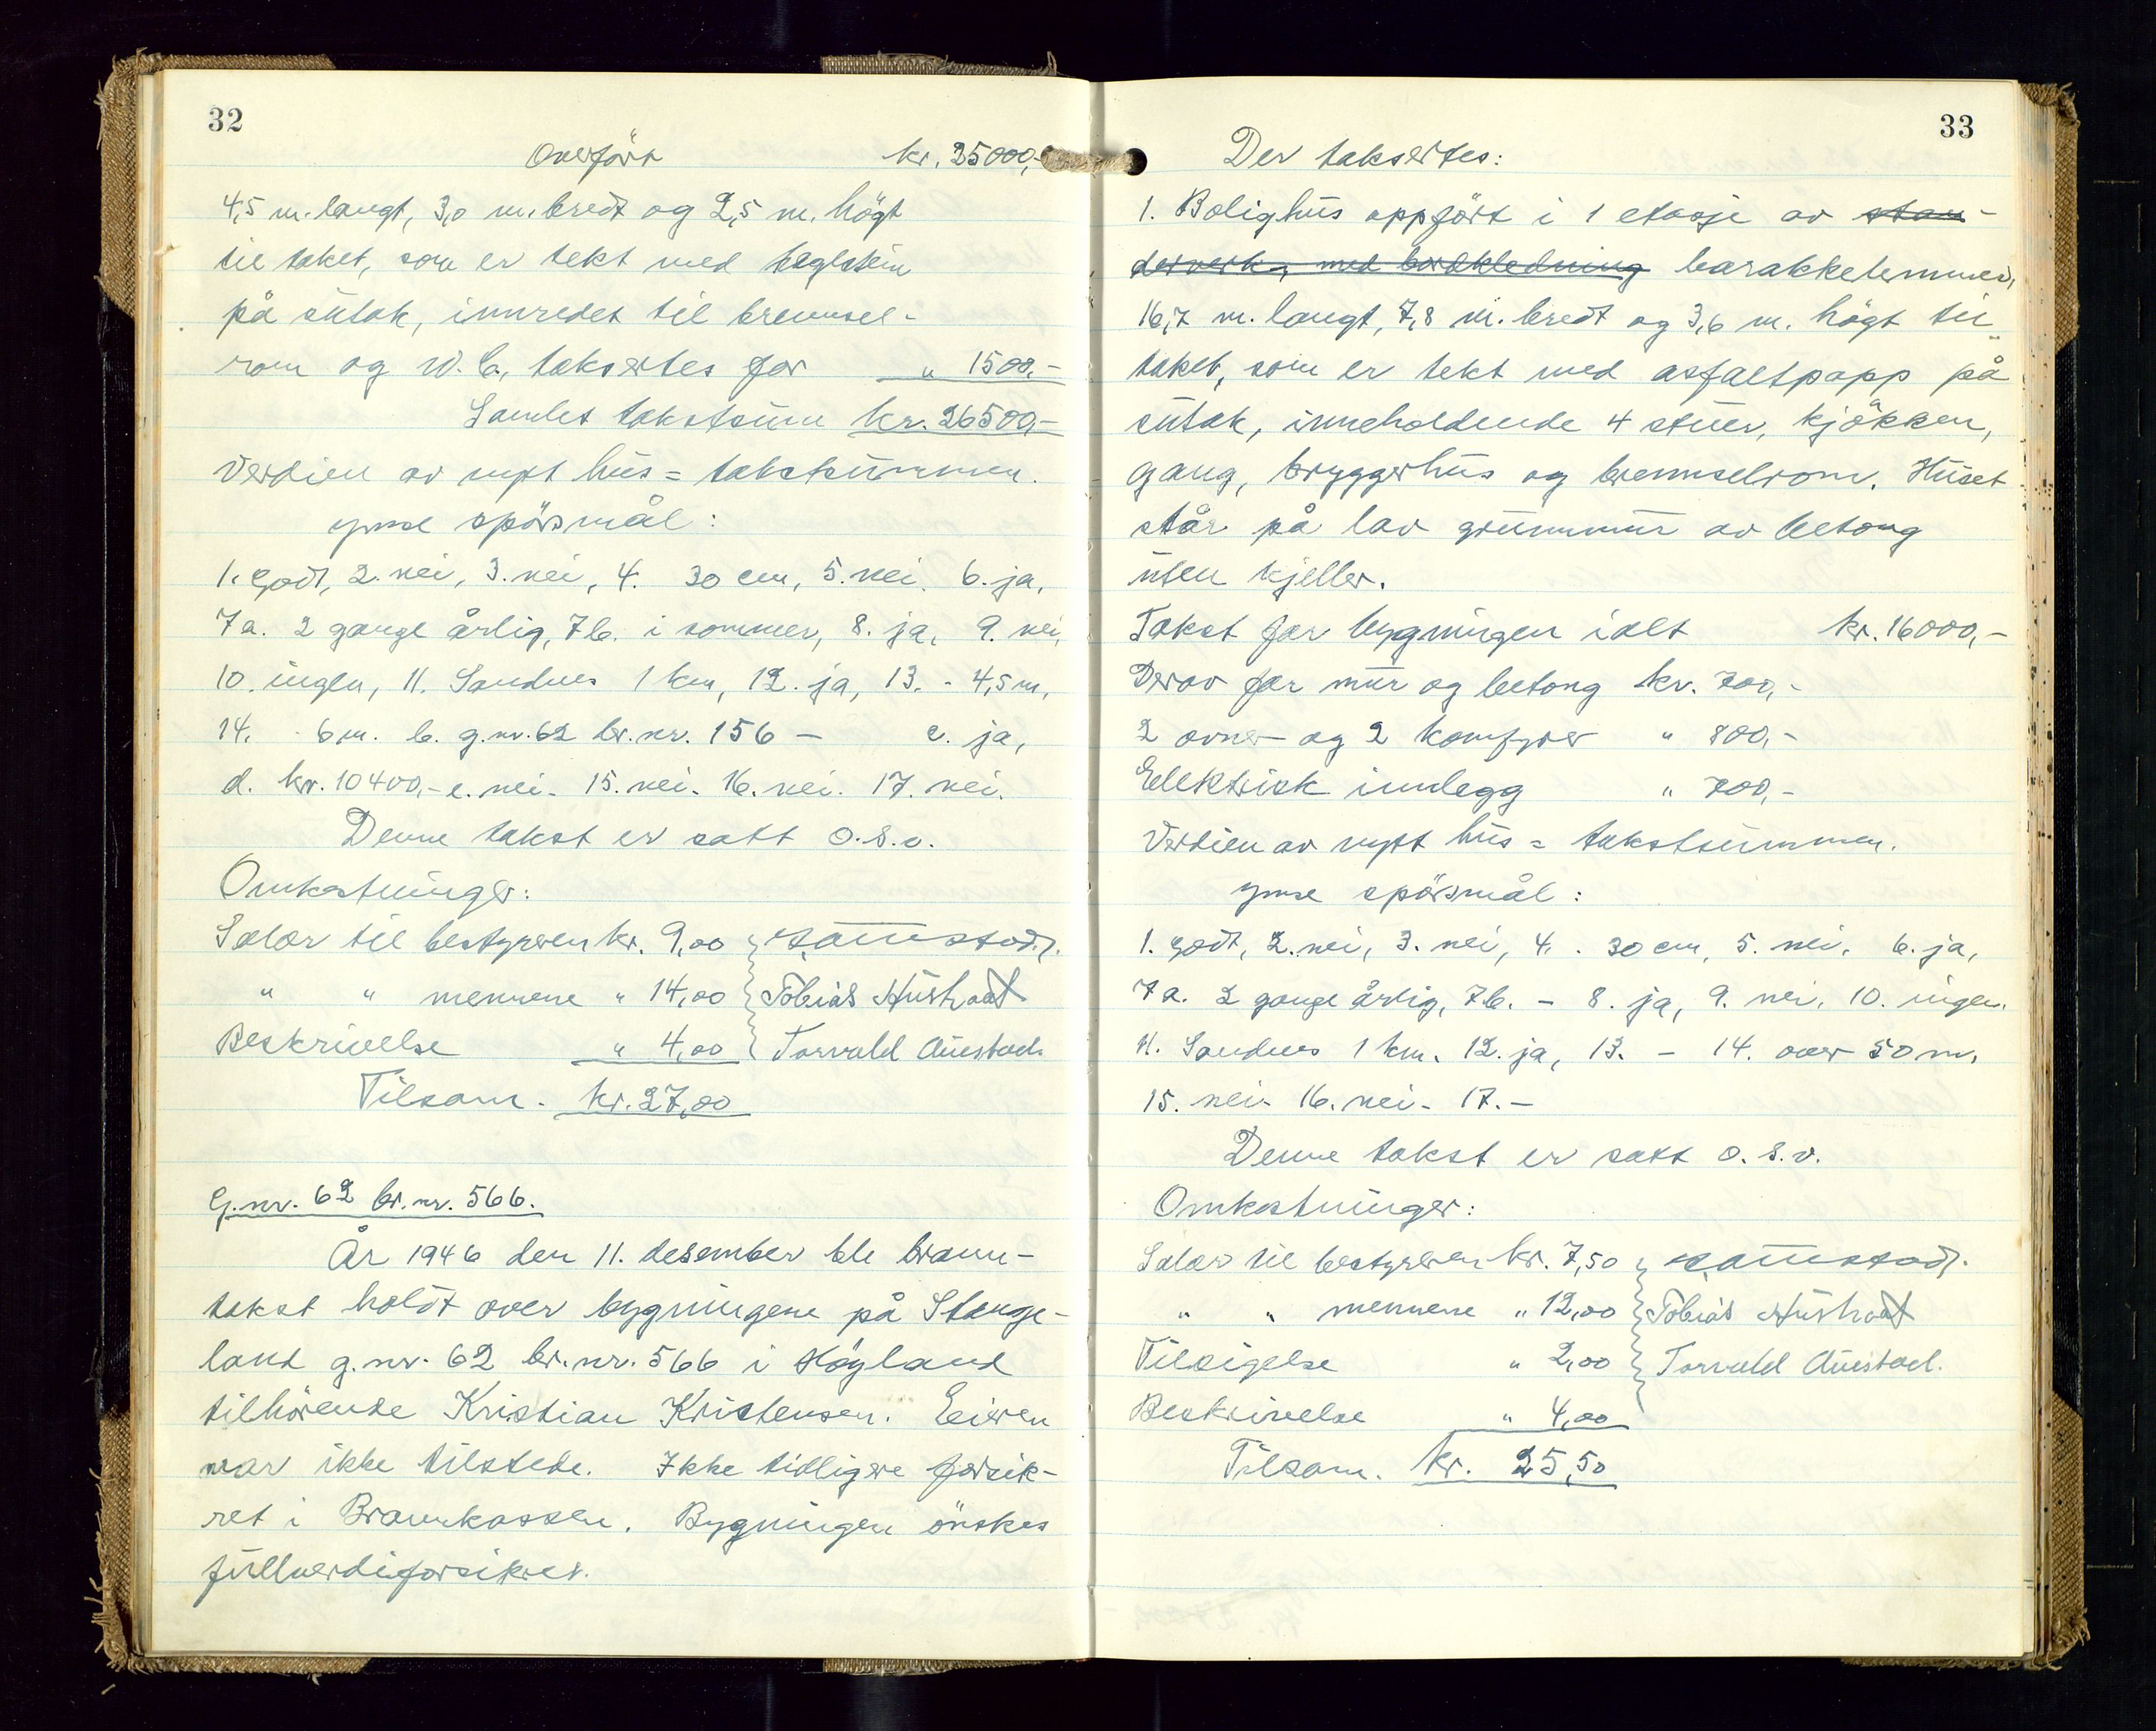 32
Overført kr. 25000,-
4,5 m. langt, 3,0 m. bredt og 2,5 m. högt
til taket, som er tekt med teglstein
på sutak, innredet til brensel-
rom og W.C., taksertes for " 1500,-
Samlet takstsum kr. 26500,-
Verdien av nytt hus = takstsummen.
Ymse spörsmål:
1. Godt, 2. nei, 3. nei, 4. 30 cm, 5. nei. 6. ja,
7a. 2 gange årlig, 7b. i sommer, 8. ja, 9. nei,
10. ingen, 11. Sandnes 1 km, 12. ja, 13. - 4,5 m,
14. 6 m. b. g.nr. 62 br.nr. 156 - c. ja,
d. kr. 10400,- e. nei. 15. nei. 16. nei. 17. nei.
Denne takst er satt o.s.v.
Omkostninger:
Salær til bestyreren kr. 9,00
" " mennene " 14,00 Tobias Husholdt
Beskrivelse " 4,00 Torvald Auestad
Tilsam. kr. 27,00
G.nr. 62 br.nr. 566.
År 1946 den 11. desember ble brann-
takst holdt over bygningene på Stange-
land g.nr. 62 br.nr. 566 i Høyland
tilhörende Kristian Kristensen. Eieren
var ikke tilstede. Ikke tidligere forsik-
ret i Brannkassen. Bygningen önskes
fullverdiforsikret.
33
Der taksertes:
1. Bolighus oppfört i 1 etasje av stan-
derverk, med bordkledning barakkelemmer,
16,7 m. langt, 7,8 m. bredt og 3,6 m. högt til
taket, som er tekt med asfaltpapp på
sutak, inneholdende 4 stuer, kjökken,
gang, bryggerhus og brenselrom. Huset
står på lav grunnmur av betong
uten kjeller.
Takst for bygningen ialt kr. 16000,-
Derav for mur og betong kr. 700,-
2 ovner og 2 komfyrer " 800,-
Elektrisk innlegg " 700,-
Verdien av nytt hus = takstsummen.
Ymse spörsmål:
1. Godt, 2. nei, 3. nei, 4. 30 cm, 5. nei. 6. ja,
7a. 2 gange årlig, 7b. - 8. ja, 9. nei, 10. ingen.
11. Sandnes 1 km. 12. ja, 13. - 14. over 50 m,
15. nei. 16. nei. 17. -
Denne takst er satt o.s.v.
Omkostninger:
Salær til bestyreren kr. 7,50
" " mennene " 12,00 Tobias Husholdt
Tilsigelse " 2,00 Torvald Auestad.
Beskrivelse " 4,00
Tilsam. kr. 25,50